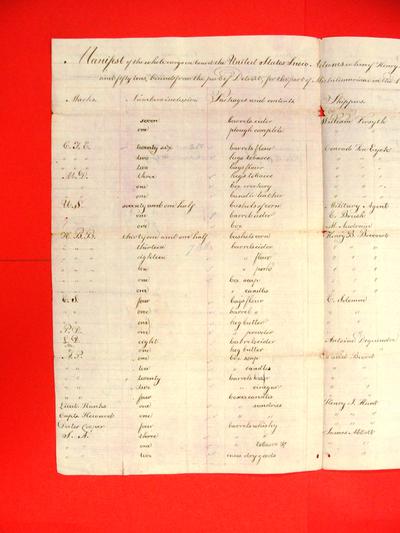 Manifest of the whole cargo on board the United States Snow Adams whereof Henry
and fifty tons, bound from the port of Detroit, for the port of Michilimackinac in the
Marks Numbers in cession Packages and contents Shippers
seven barrels cider William Forsyth
one plough complete
C. T. E. twenty six barrels flour Conrade Ten Eyck
" " " two kegs tobacco " " "
" " " two bags flour " " "
M. D. three kegs tobacco " " "
" " one box " " "
" " one bundle leather " " "
U. S. seventy and one half bushels of corn Military Agent
" " one barrel cider E. Brush
" " one box
H. B. B. thirty one and one half bushels corn Henry B. Brevoort
" " " thirteen barrels cider " " "
" " " eighteen " flour " " "
" " " ten " pork " " "
" " " one box soap " " "
" " " one " candles " " "
E. S. four bags flour
" " one barrel "
" " one keg butter
P. D. one " powder
eight barrels cider Antoine Dequindre
" one keg butter
J. P. one box soap
" " ten " candles
" " twenty barrels
" " two " vinegar
" " four boxes candles
Lieut. Hanks one " sundries Henry J. Hunt
Capt. Howard one " "
Doctor Cooper four barrels whisky
S. A. three " " James Abbott
" " one
" " two cases dry goods